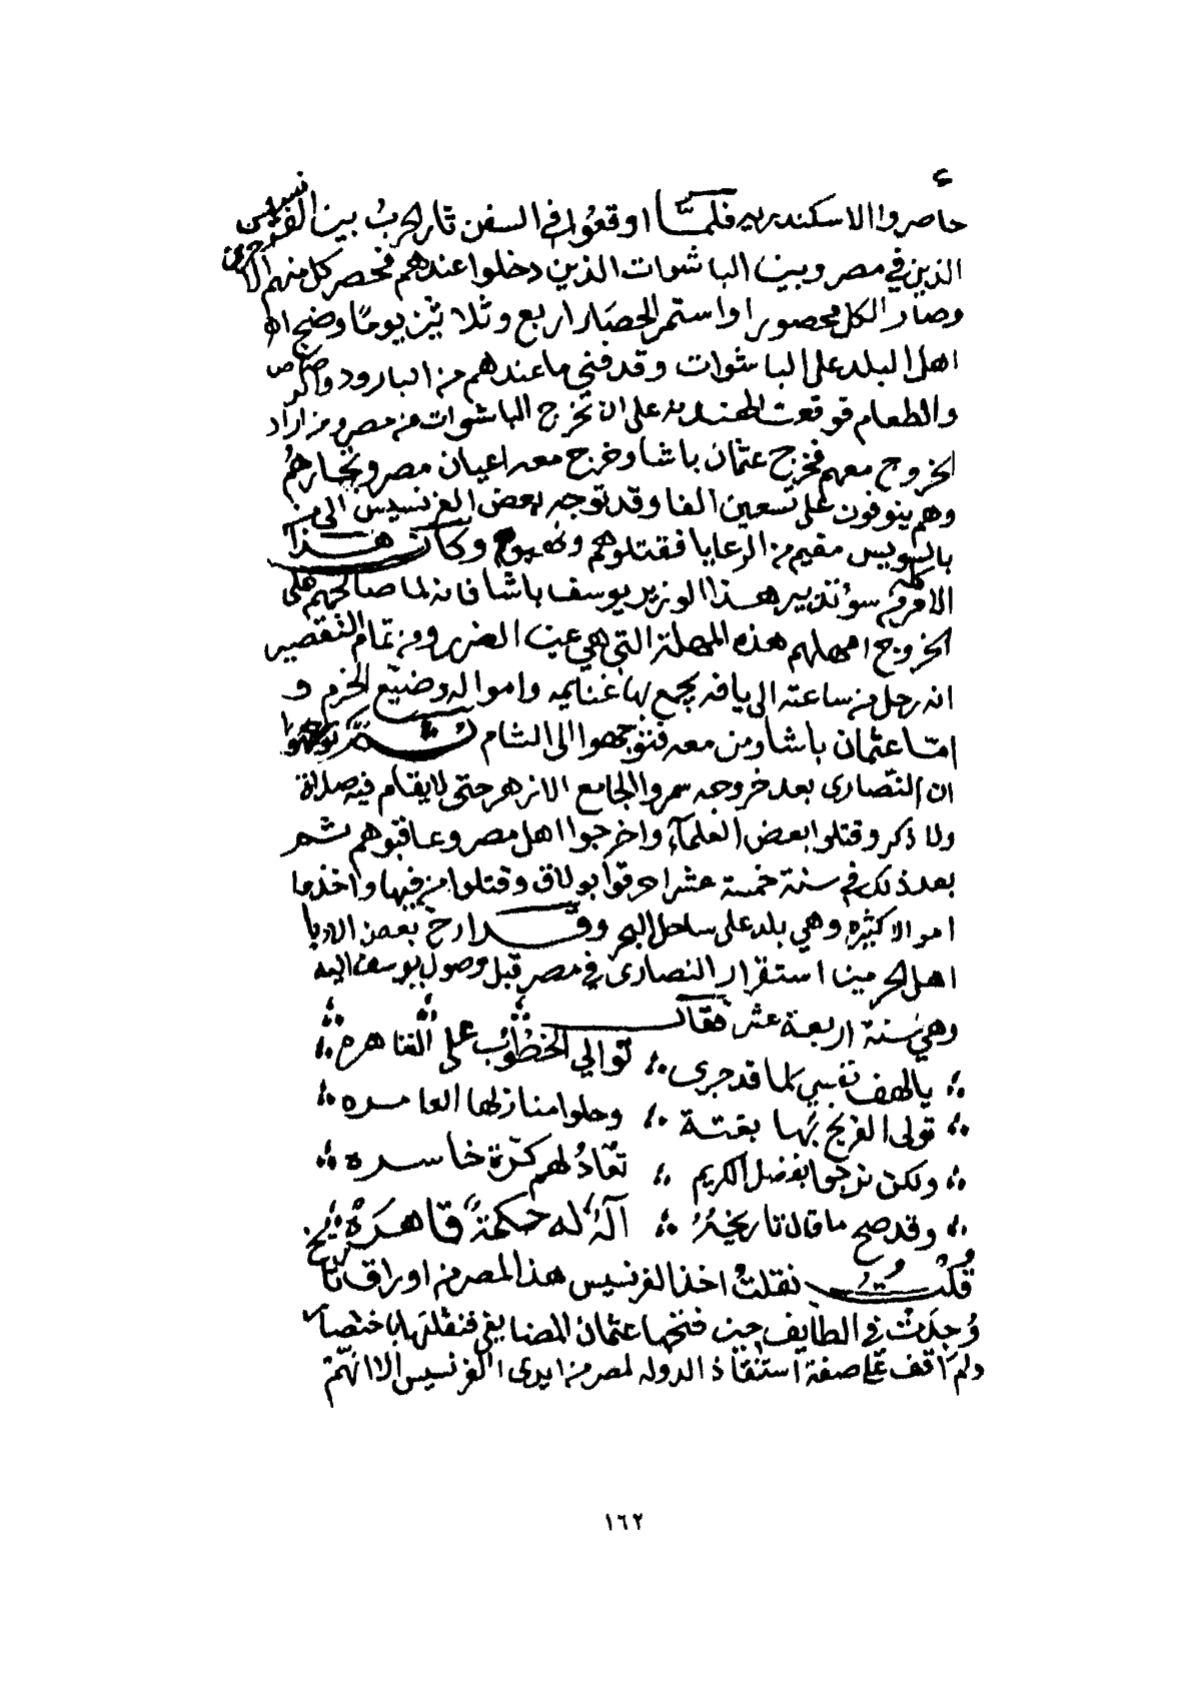 حاصروا الاسكندريه فلمّا اوقعوا في السفن ثار الحربُ بين الفرنسيس
الذين في مصر وبين الباشوات الذين دخلوا عندهم فحصر كل منهم الاخرين
وصار الكل محصورا واستمر الحصار اربع وثلاثين يومًا وضج
اهل البلد على الباشوات وقد فني ما عندهم من البارود والرصاص
والطعام فوقعت الهدنة على ان تخرج الباشوات من مصر ومن اراد
الخروج معهم فخرج عثمان باشا وخرج معه اعيان مصر وتجارهُم
وهم ينوفون على تسعين الفا وقد توجه بعض الفرنسيس الى من
بالسويس مقيم من الرعايا فقتلوهم ونهبوهم وكان هذا
الامر كله من سوٴ تدبير هذا الوزير يوسف باشا فانه لما صالحهم على
الخروج امهلهم هذه المهلة التي هي عين الضرر ومن تمام التقصير
انه رحل من ساعته الى يافه بجمع بها غنايمه وامواله وضيّع الحزم و
امّا عثمان باشا ومن معه فتوجهوا الى الشام
ان النصارى بعد خروجه سمروا الجامع الازهر حتى لا يقام فيه صلاة
ولا ذكر وقتلوا بعض العلمآء واخرجوا اهل مصر وعاقبوهم ثم
بعد ذلك في سنة خمسة عشر احرقوا بولاق وقتلوا من فيها واخذوا
اموالا كثيره وهي بلد على ساحل البحر وقد ارخ بعض الادبا
اهل الحرمين استقرار النصارى في مصر قبل وصول يوسف اليه
وهي سنة اربعة عشر فقال
يا لهف نفسي لما قد جرى توالي الخطُوُب على القاهره
تولى الفرنج بها بغتة وحلوا منازلها العامره
ولكن نرجوا بفضل الكريم تعادُ لهم كرّة خاسره
وقد صح ما قال تاريخهُ الهٌ له حكمةٌ قاهرَهْ
قُلتُ نقلتُ اخذ الفرنسيس هذا لمصر من اوراق تاريخ
وُجِدَتْ في الطايف حين فتحها عثمان المضايفي فنقلتها باختصار
ولم اقف على صفة استنقاذ الدوله لمصر من ايدى الفرنسيس الا انهم
١٦٢